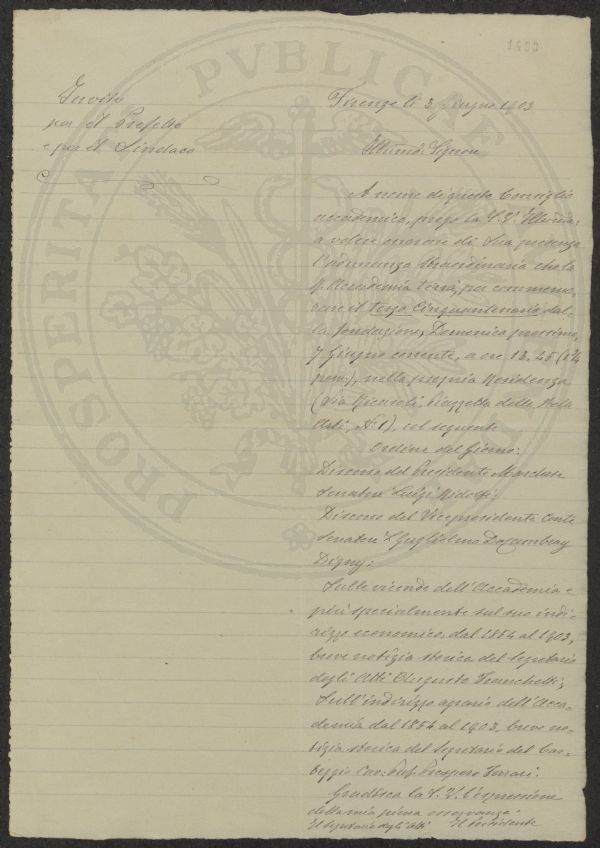 1903
Invito
per il Prefetto
e per il Sindaco
Firenze li 3 Giugno 1903
Illmo. Signore
A nome di questo Consiglio
accademico, prego la S. V. Illma.
a volere onorare di Sua presenza
l'adunanza straordinaria che la
R. Accademia terrà, per commemo-
rare il terzo Cinquantenario dal-
la fondazione, Domenica prossima,
7 Giugno corrente, a ore
pom.), nella propria Residenza
(Via Ricasoli, Piazzetta delle Belle
Arti, N.º 1), col seguente
Ordine del Giorno:
Discorso del Presidente Marchese
Senatore Luigi Ridolfi;
Discorso del Vicepresidente Conte
Senatore Guglielmo De Cambray
Digny;
Sulle vicende dell'Accademia e
più specialmente sul suo indi-
rizzo economico, dal 1854 al 1903,
breve notizia storica del Segretario
degli Atti Augusto Franchetti;
Sull'indirizzo agrario dell'Acca-
demia dal 1854 al 1903, breve no-
tizia storica del Segretario del Car-
teggio Cav. Prof. Prospero Ferrari.
Gradisca la S. V. l'espressione
della mia piena osservanza.
Il Segretario degli Atti Il Presidente
PROSPERITATI PVBLICAE